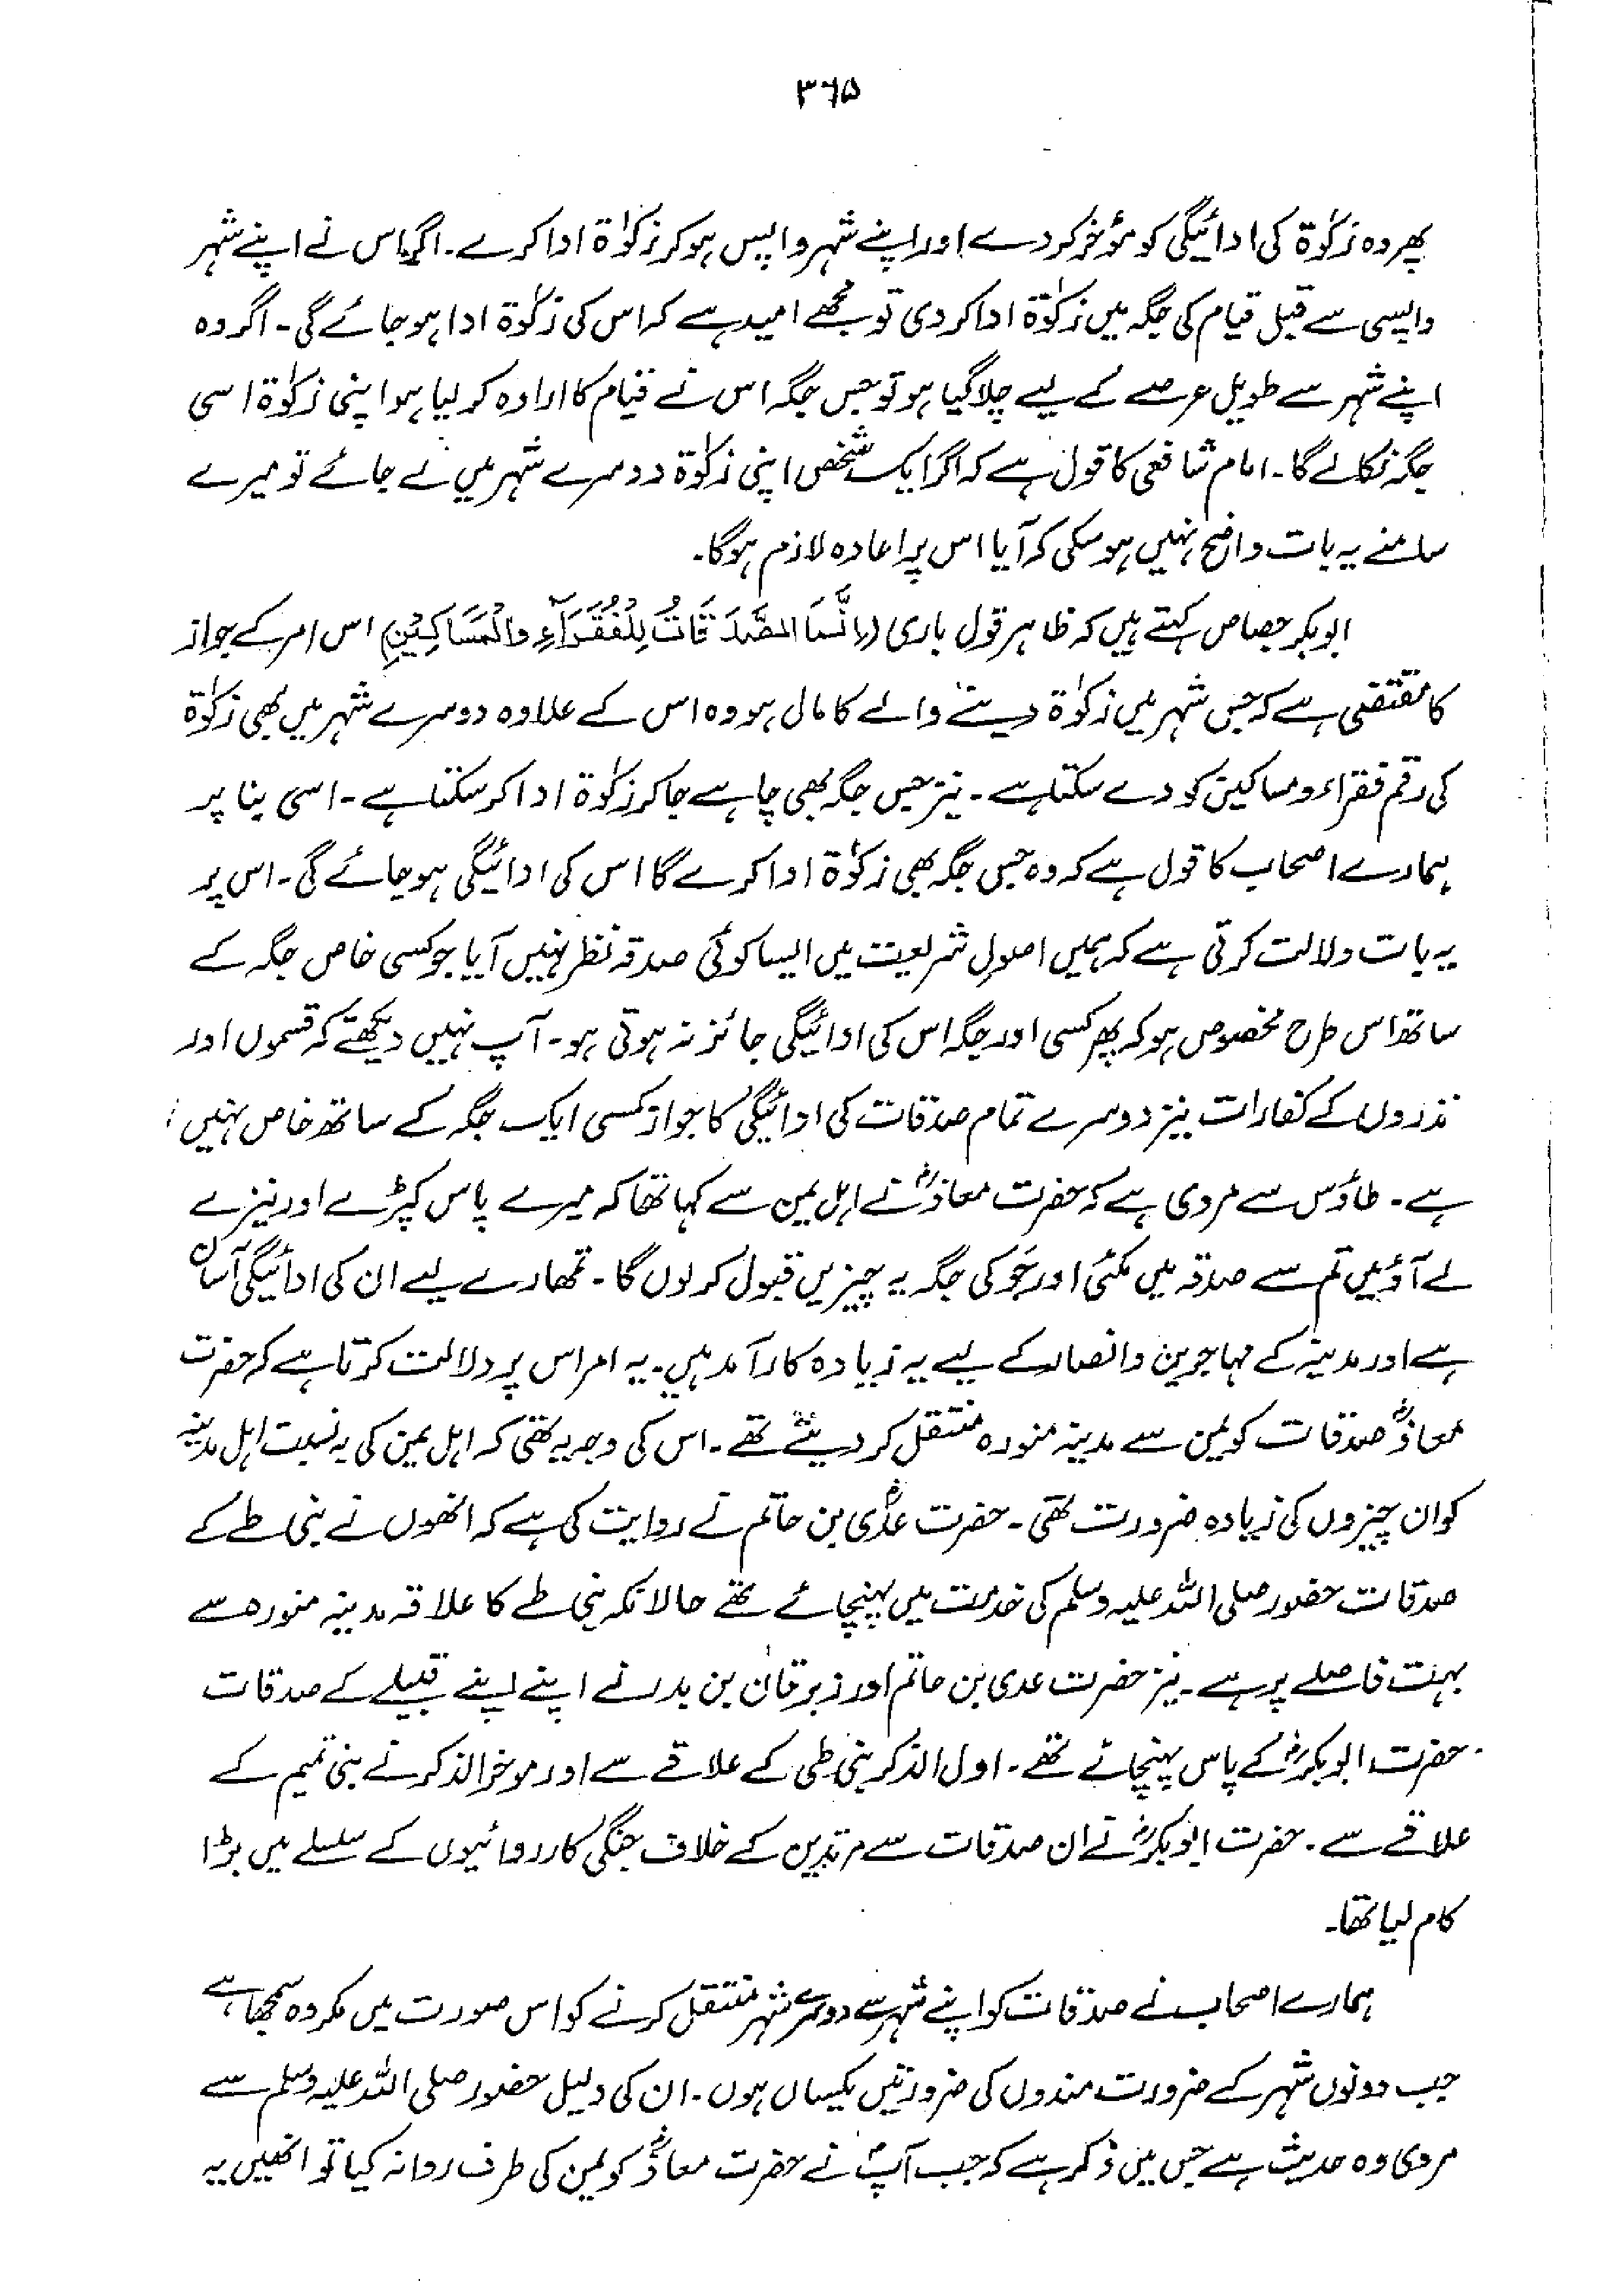 ۳۶۵
پھر وہ زکوٰۃ کی ادائیگی کو مؤخر کر دے اور اپنے شہر واپس ہو کر زکوٰۃ ادا کرے۔ اگر اس نے اپنے شہر
واپسی سے قبل قیام کی جگہ میں زکوٰۃ ادا کر دی تو مجھے امید ہے کہ اس کی زکوٰۃ ادا ہو جائے گی۔ اگر وہ
اپنے شہر سے طویل عرصے کے لیے چلا گیا ہو تو جس جگہ اس نے قیام کا ارادہ کر لیا ہو اپنی زکوٰۃ اسی
جگہ نکالے گا۔ امام شافعی کا قول ہے کہ اگر ایک شخص اپنی زکوٰۃ دوسرے شہر میں لے جائے تو میرے
سامنے یہ بات واضح نہیں ہو سکی کہ آیا اس پر اعادہ لازم ہو گا۔
ابوبکر جصاص کہتے ہیں کہ ظاہر قول باری (اِنَّمَا الصَّدَقَاتُ لِلْفُقَرَآءِ وَالْمَسَاكِيْنِ) اس امر کے جواز
کا مقتضی ہے کہ جس شہر میں زکوٰۃ دینے والے کا مال ہو وہ اس کے علاوہ دوسرے شہر میں بھی زکوٰۃ
کی رقم فقراء و مساکین کو دے سکتا ہے۔ نیز جس جگہ بھی چاہے جا کر زکوٰۃ ادا کر سکتا ہے۔ اسی بنا پر
ہمارے اصحاب کا قول ہے کہ وہ جس جگہ بھی زکوٰۃ ادا کرے گا اس کی ادائیگی ہو جائے گی۔ اس پر
یہ بات دلالت کرتی ہے کہ ہمیں اصولِ شریعت میں ایسا کوئی صدقہ نظر نہیں آیا جو کسی خاص جگہ کے
ساتھ اس طرح مخصوص ہو کہ پھر کسی اور جگہ اس کی ادائیگی جائز نہ ہوتی ہو۔ آپ نہیں دیکھتے کہ قسموں اور
نذروں کے کفارات نیز دوسرے تمام صدقات کی ادائیگی کا جواز کسی ایک جگہ کے ساتھ خاص نہیں
ہے۔ طاؤس سے مروی ہے کہ حضرت معاذؓ نے اہل یمن سے کہا تھا کہ میرے پاس کپڑے اور نیزے
لے آؤ میں تم سے صدقہ میں مکئی اور جَو کی جگہ یہ چیزیں قبول کر لوں گا۔ تمھارے لیے ان کی ادائیگی آسان
ہے اور مدینہ کے مہاجرین و انصار کے لیے یہ زیادہ کارآمد ہیں۔ یہ امر اس پر دلالت کرتا ہے کہ حضرت
معاذؓ صدقات کو یمن سے مدینہ منورہ منتقل کر دیتے تھے۔ اس کی وجہ یہ تھی کہ اہل یمن کی بہ نسبت اہل مدینہ
کو ان چیزوں کی زیادہ ضرورت تھی۔ حضرت عدیؓ بن حاتم نے روایت کی ہے کہ انھوں نے بنی طے کے
صدقات حضور صلی اللہ علیہ وسلم کی خدمت میں پہنچائے تھے حالانکہ بنی طے کا علاقہ مدینہ منورہ سے
بہت فاصلے پر ہے۔ نیز حضرت عدی بن حاتم اور زبرقان بن بدر نے اپنے اپنے قبیلے کے صدقات
حضرت ابوبکرؓ کے پاس پہنچائے تھے۔ اول الذکر بنی طی کے علاقے سے اور موخر الذکر نے بنی تمیم کے
علاقے سے۔ حضرت ابوبکرؓ نے ان صدقات سے مرتدین کے خلاف جنگی کارروائیوں کے سلسلے میں بڑا
کام لیا تھا۔
ہمارے اصحاب نے صدقات کو اپنے شہر سے دوسرے شہر منتقل کرنے کو اس صورت میں مکروہ سمجھا ہے
جب دونوں شہر کے ضرورت مندوں کی ضرورتیں یکساں ہوں۔ ان کی دلیل حضور صلی اللہ علیہ وسلم سے
مروی وہ حدیث ہے جس میں ذکر ہے کہ جب آپؐ نے حضرت معاذؓ کو یمن کی طرف روانہ کیا تو انھیں یہ